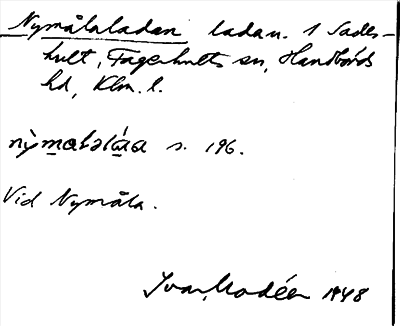 Nymålaladan ladan. 1 Sades-
hult, Fagerhults sn, Handbörds
hd, Klm. l.
nỳmatəláa s. 196.
Vid Nymåla.
Ivar Modéer 1948